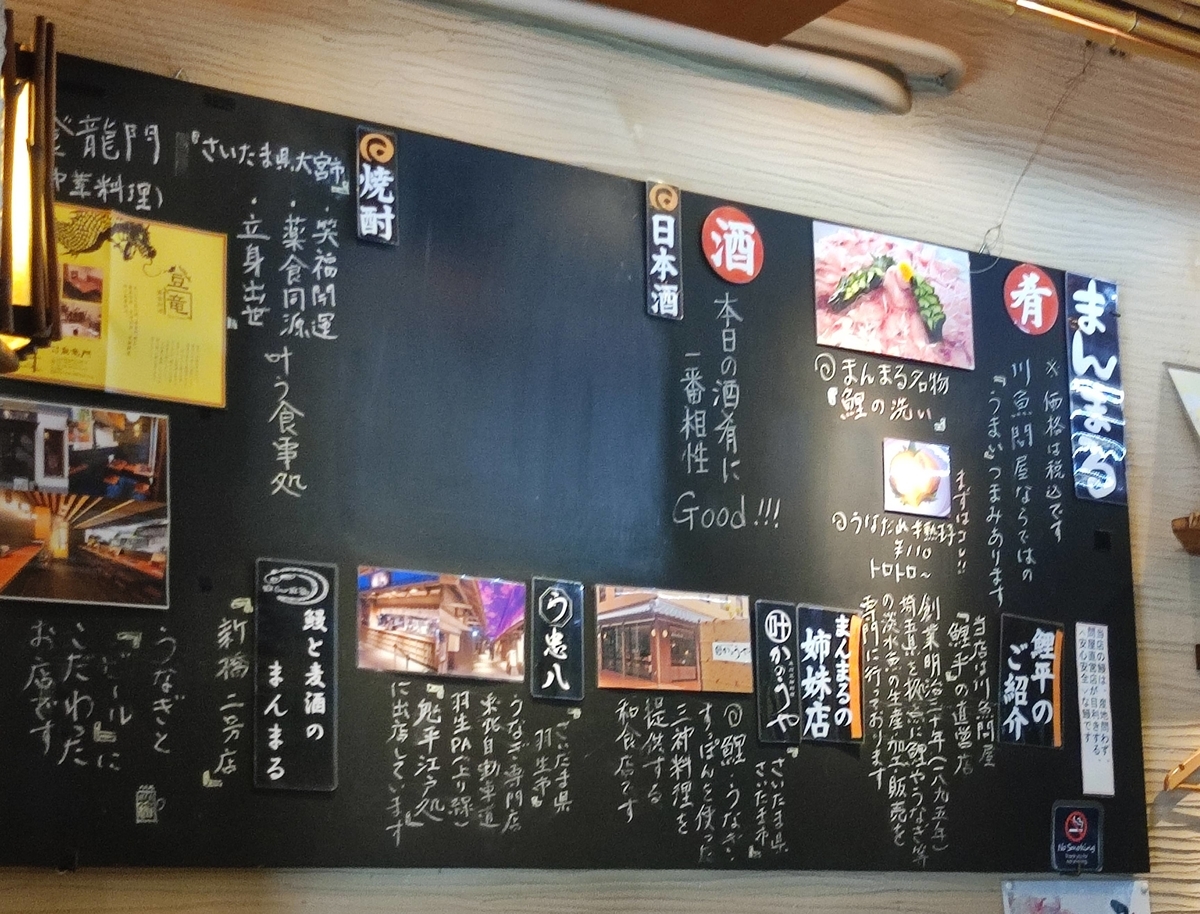 まんまる
肴
※価格は税込です
川魚問屋ならではの
『うまい』つまみあります
まんまる名物
『鯉の洗い』
まずはコレ!!
¥110
トロトロ～
酒
本日の酒肴に
一番相性
Good!!!
日本酒
焼酎
『さいたま県大宮市』
・笑福開運
・薬食同源
・立身出世
叶う食事処
登龍門
(中華料理)
登竜
当店の鰻は、産地問わず、
問屋直営店が目利きする、
〈安心安全〉な鰻です
鯉平の
ご紹介
当店は川魚問屋
『鯉平』の直営店
創業明治三十年(一八九五年)
埼玉県を拠点に鯉やうなぎ等
の淡水魚の生産・加工・販売を
専門に行っております
まんまるの
姉妹店
叶 かのうや
『さいたま県
さいたま市』
鯉・うなぎ・
すっぽんを使った
三神料理を
提供する
和食店です
う 忠八
『さいたま県
羽生市』
うなぎ専門店
東北自動車道
羽生PA(上り線)
『鬼平江戸処』
に出店しています
鰻と麦酒の
まんまる
『新橋二号店』
うなぎと
『ビール』に
こだわった
お店です
No Smoking